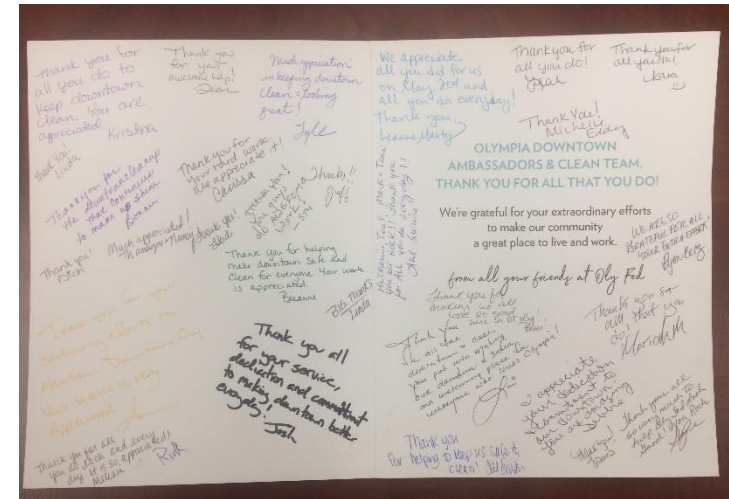 Thank you for
all you do to
keep downtown
clean. You are
appreciated
Kristina
Thank you
for your
awesome help!
Much appreciation
in keeping downtown
clean & looking
great!
Lyle
Thank you!
Linda
Thank you for
the downtown cleanup
that continues
to make us shine
Thank you for
your hard work
We appreciate it!
Carissa
Thank you!
You guys
do
work!
Thanks!!
Much appreciated!
Thank you!
Thank you!
Thank you for helping
make downtown safe and
clean for everyone. Your work
is appreciated.
BIG THANKS
Linda
Thank you for your
efforts to
Maintain Downtown Oly
Your service is very
Appreciated
Thank you all
for your service,
dedication and commitment
to making downtown better
everyday!
Josh
Thank you for all
you do each and every
day. It is so appreciated!
Melissa
Ruth
We appreciate
all you did for us
on May
and
all you do everyday!
Thank you,
Leanne
Thank you for
all you do!
Thank you for
all you do!
Kara
Thank You!
Michelle
OLYMPIA DOWNTOWN
AMBASSADORS & CLEAN TEAM,
THANK YOU FOR ALL THAT YOU DO!
We're grateful for your extraordinary efforts
to make our community
a great place to live and work.
from all your friends at Oly Fed
WE ARE SO
GRATEFUL FOR ALL
YOUR EXTRA EFFORT.
you ROCK!! Thank you
for all you do everyday!!
Thank you for
making us all
look so good
here in
Thank you
for all the
dedication & care
you put into making
our downtown a safe,
welcoming place for
everyone who loves Olympia!
Thank you for
all that you
do!
Meridith
We appreciate
your dedication
& commitment to
our downtown
You are amazing
Debbie
Thank you
for helping to keep us safe &
clean!
Thank you!
Thank you all
so very much to
help
look
Good. You Rock